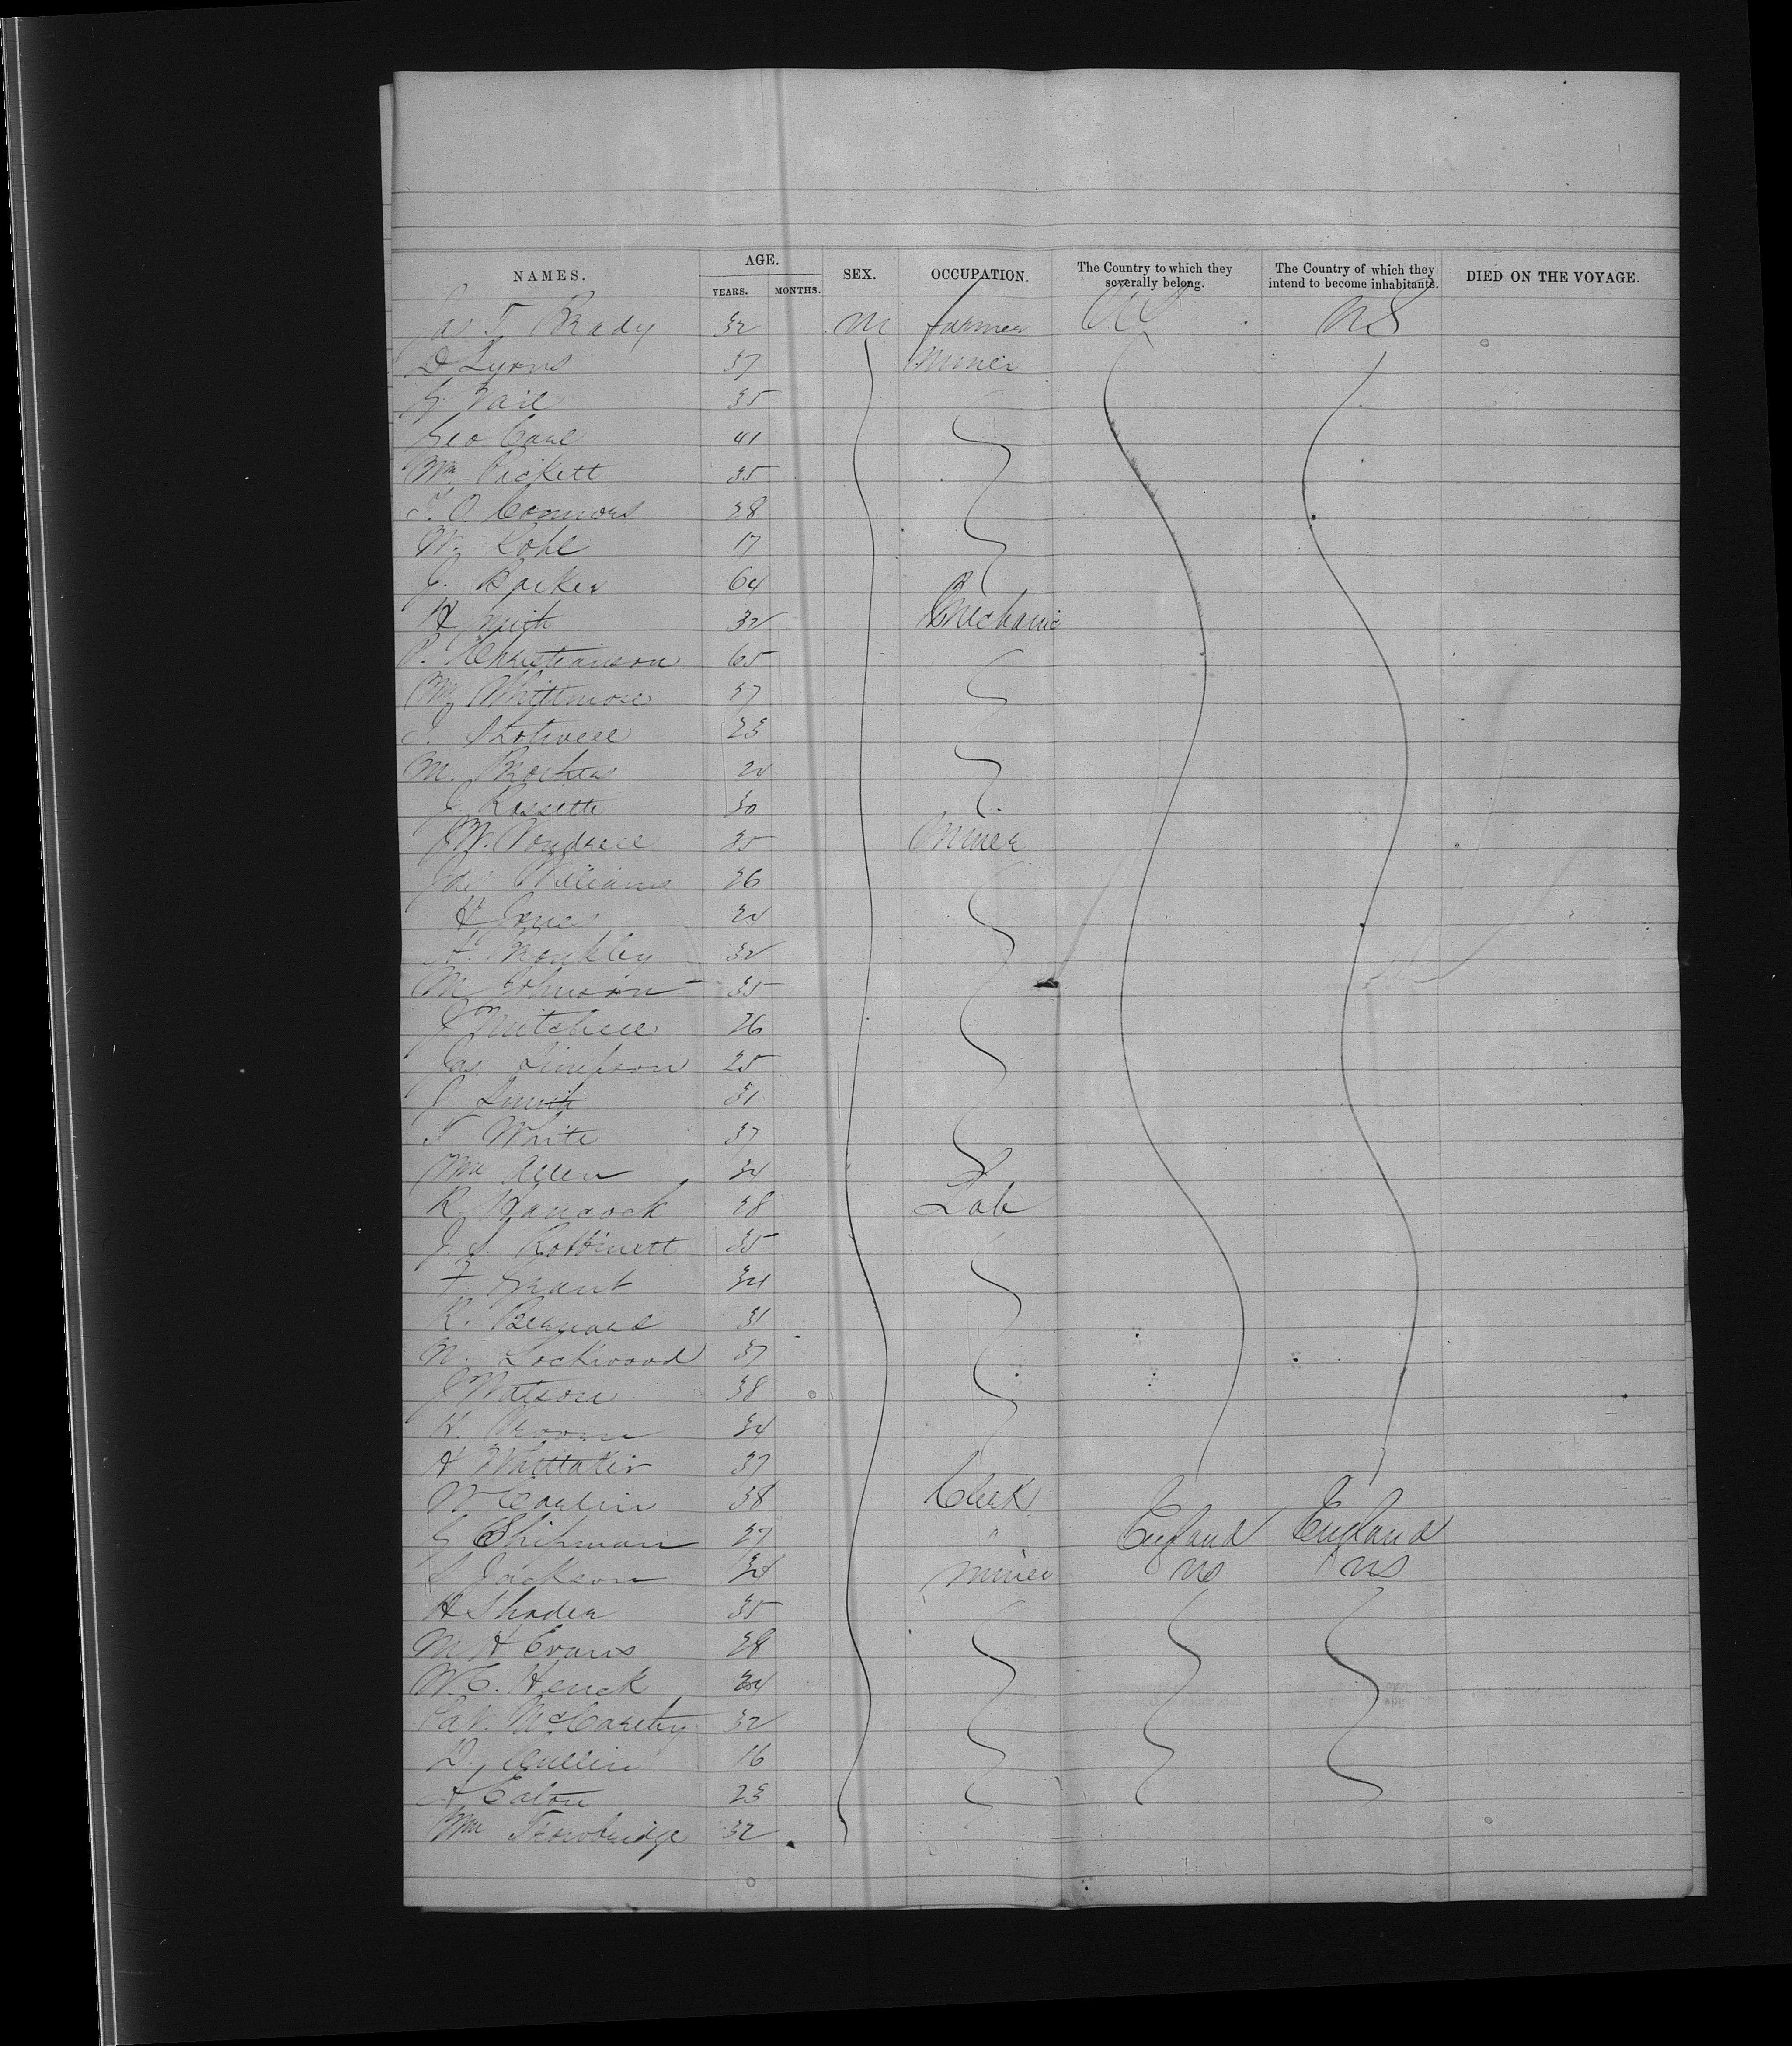 NAMES. AGE. SEX. OCCUPATION. The Country to which they severally belong. The Country of which they intend to become inhabitants. DIED ON THE VOYAGE.
YEARS. MONTHS.
Jas T Brady 32 M farmer US US
D Lyons 37 Miner
G. Vail 35
Geo Carl 41
Wm Pickett 35
T. O. Connors 28
W. 17
J. Barker 64
H Smith 32 Mechanic
P. Christianson 65
Wm Whittmore 37
J. Shotwell 23
M. 24
J. Rossette 30
J W. 35 Miner
Jas Williams 26
H Jones 24
A. Brinkley 32
M Johnson 35
Jon Mitchell 26
Jas. Simpson 25
J Smith 31
T White 37
Wm Allen 34
R Hancock 28 Lab
J. S. Robbinett 35
F Grant 34
R. Bernard 31
N. Lockwood 37
J Watson 38
H. Vroom 34
A Whittaker 37
W Carlin 38 Clerk
G Shipman 27 " England England
S Jackson 34 Miner US US
H Shader 35
M H Evans 28
W. C. Henck 34
Pat. McCarthy 32
D. Cullin 16
A Eaton 23
Wm Trowbridge 32